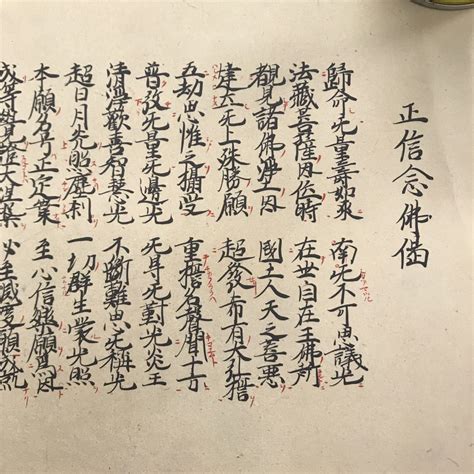 正信念佛偈
歸命无量壽如來
南无不可思議光
法藏菩薩因位時
在世自在王佛所
覩見諸佛淨土因
國土人天之善悪
建立无上殊勝願
超發希有大弘誓
五劫思惟之攝受
重誓名聲聞十方
普放无量无邊光
无㝵无對光炎王
清淨歡喜智慧光
不斷難思无稱光
超日月光照塵刹
一切群生蒙光照
本願名号正定業
至心信樂願為因
成等覺證大涅槃
必至滅度願成就